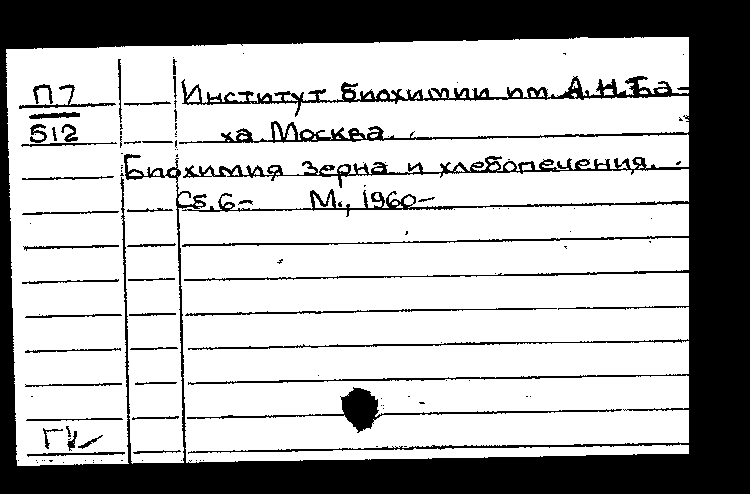 П7 Институт биохимии им. А.Н.Ба-
512 ха. Москва.
Биохимия зерна и хлебопечения.
Сб. 6- М., 1960-
ГК